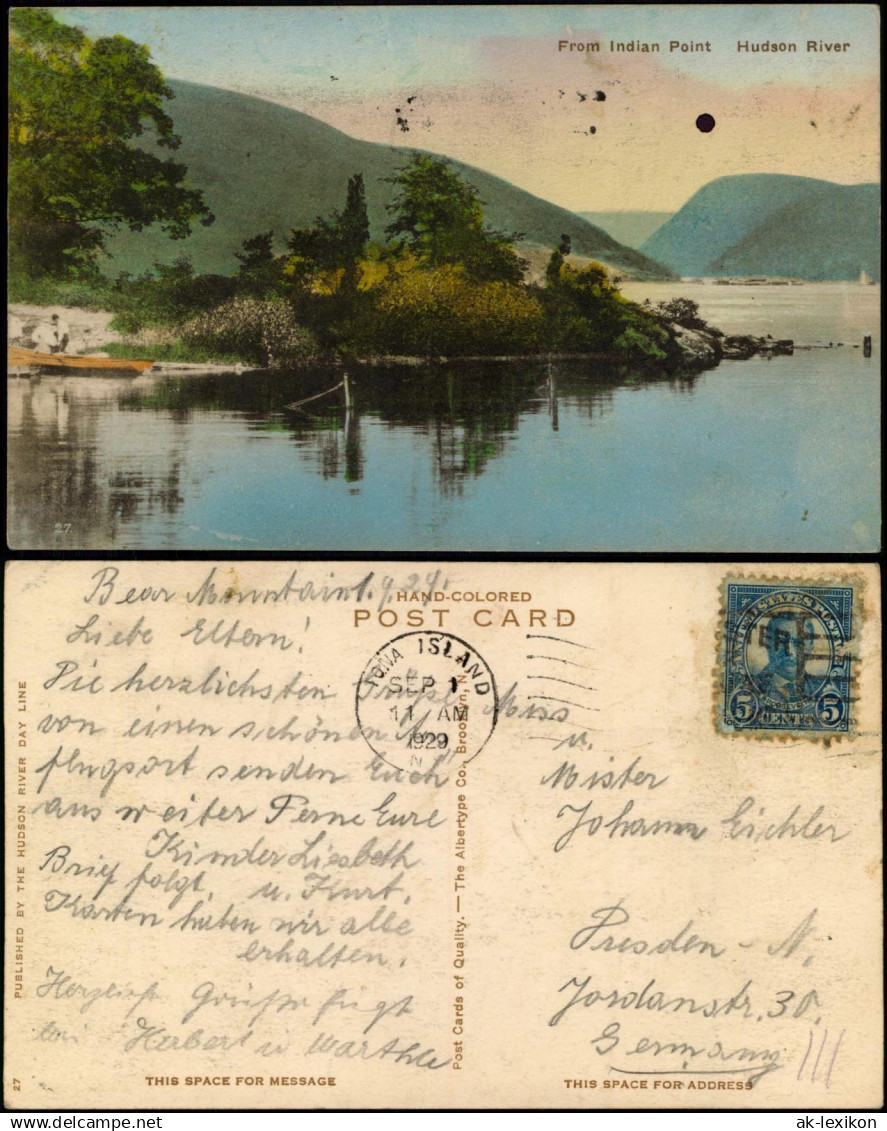 From Indian Point Hudson River
27
HAND-COLORED
POST CARD
Bear Mountain 1.9.29.
Liebe Eltern!
Die herzlichsten Grüße
von einem schönen Aus
flugsort senden Euch
aus weiter Ferne Eure
Kinder Liesbeth
Brief folgt. u. Kurt.
Karten haben wir alle
erhalten.
Herzliche Grüße fügt
bei Herbert u
IONA ISLAND
SEP 1
11 AM
1929
N
5 CENTS 5
Miss
u.
Mister
Johann Eichler
Dresden-N,
Jordanstr. 30.
Germany
PUBLISHED BY THE HUDSON RIVER DAY LINE
27
Post Cards of Quality. — The Albertype Co., Brooklyn, N
THIS SPACE FOR MESSAGE
THIS SPACE FOR ADDRESS
ak-lexikon.com